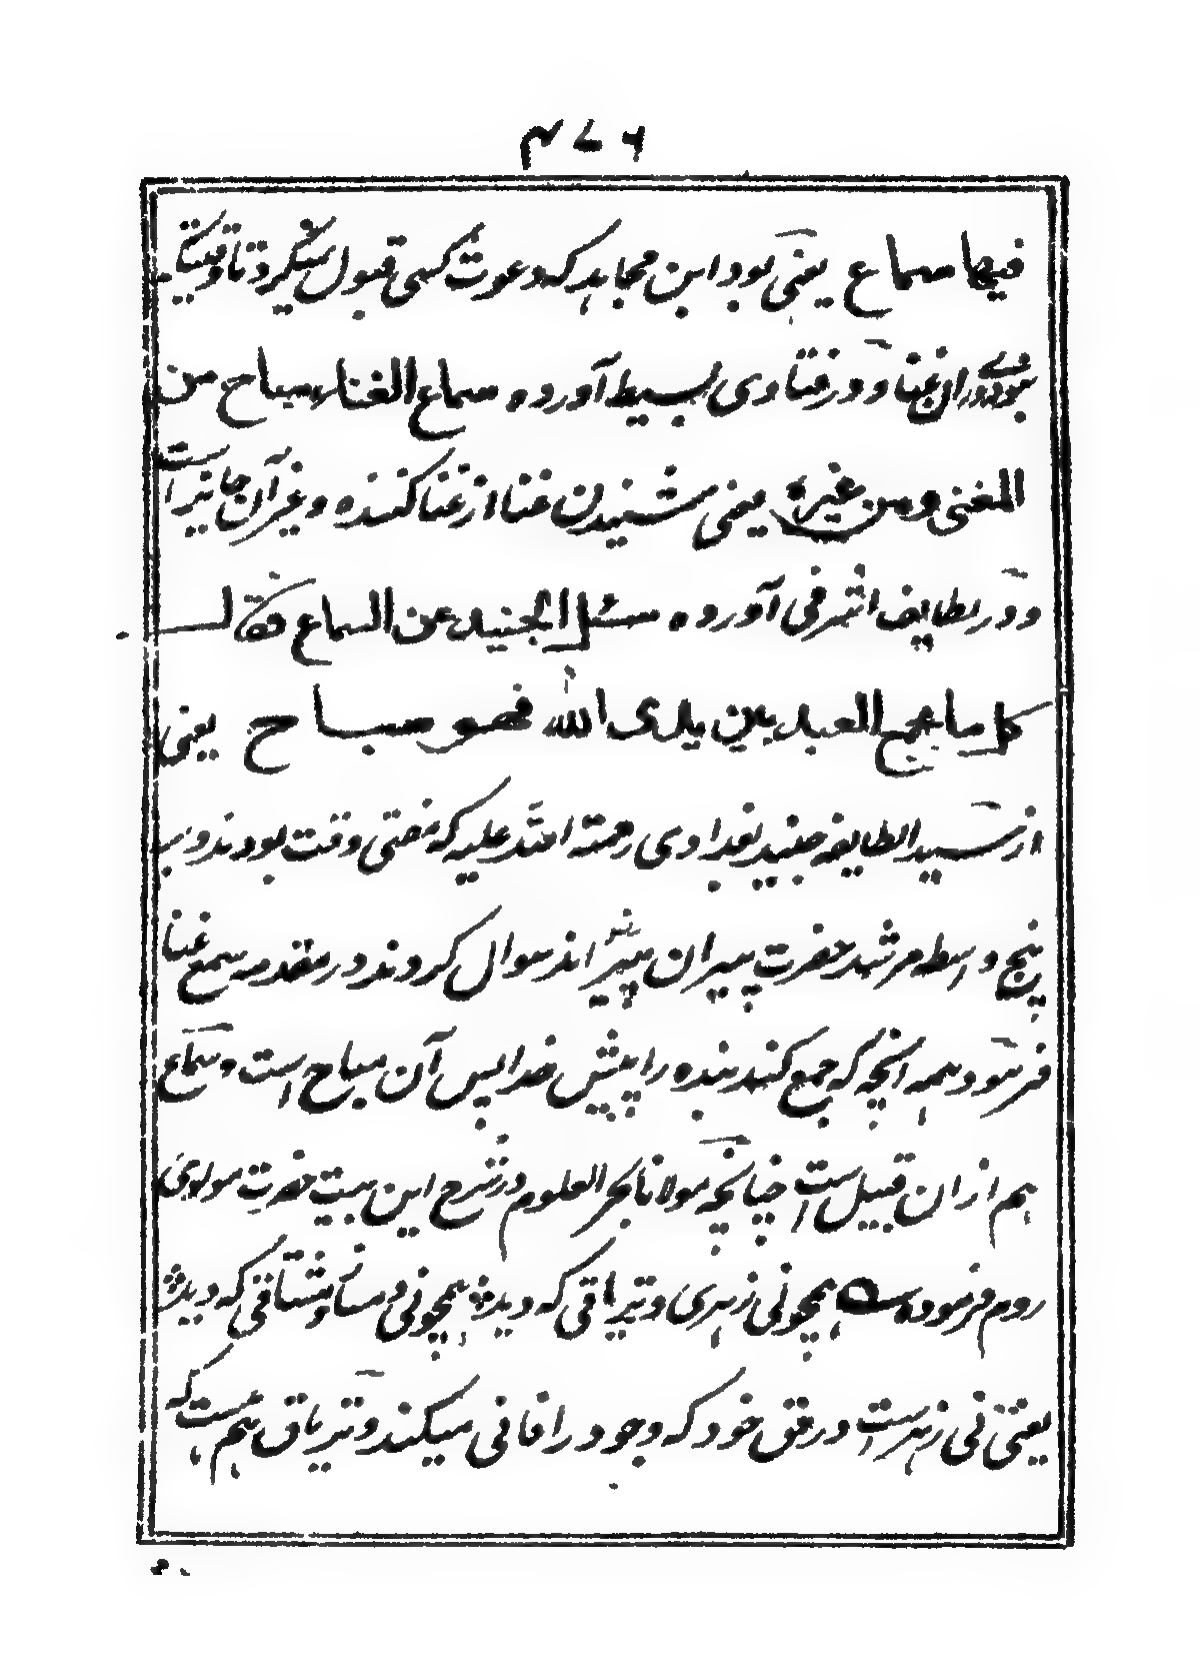 ۴۷۶
فیها سماع یعنی بود ابن مجاهد که دعوت کسی قبول نمیکرد تا وقتیکه
نبودے دران غنا و در فتاوی بسیط آورده سماع الغناء مباح من
المغنی ومن غیره یعنی شنیدن غنا از غنا کننده و غیر آن جائز است
و در لطایف اشرفی آورده سئل الجنید عن السماع فقال
کل ما یجمع العبد بین یدی الله فهو مباح یعنی
از سید الطایفه جنید بغدادی رحمته الله علیه که مفتی وقت بودند و به
پنج واسطه مرشد حضرت پیران پیر اند سوال کردند در مقدمه سمع غنا
فرمود همه آنچه که جمع کند بنده را پیش خدا پس آن مباح است و سماع
هم ازان قبیل است چنانچه مولانا بحر العلوم در شرح این بیت حضرت مولوی
روم فرموده همچو نی زهری و تریاقی که دید؛ همچو نی دمساز و مشتاقی که دید؛
یعنی نی زهر است در حق خود که وجود را فانی میکند و تریاق هم هست که